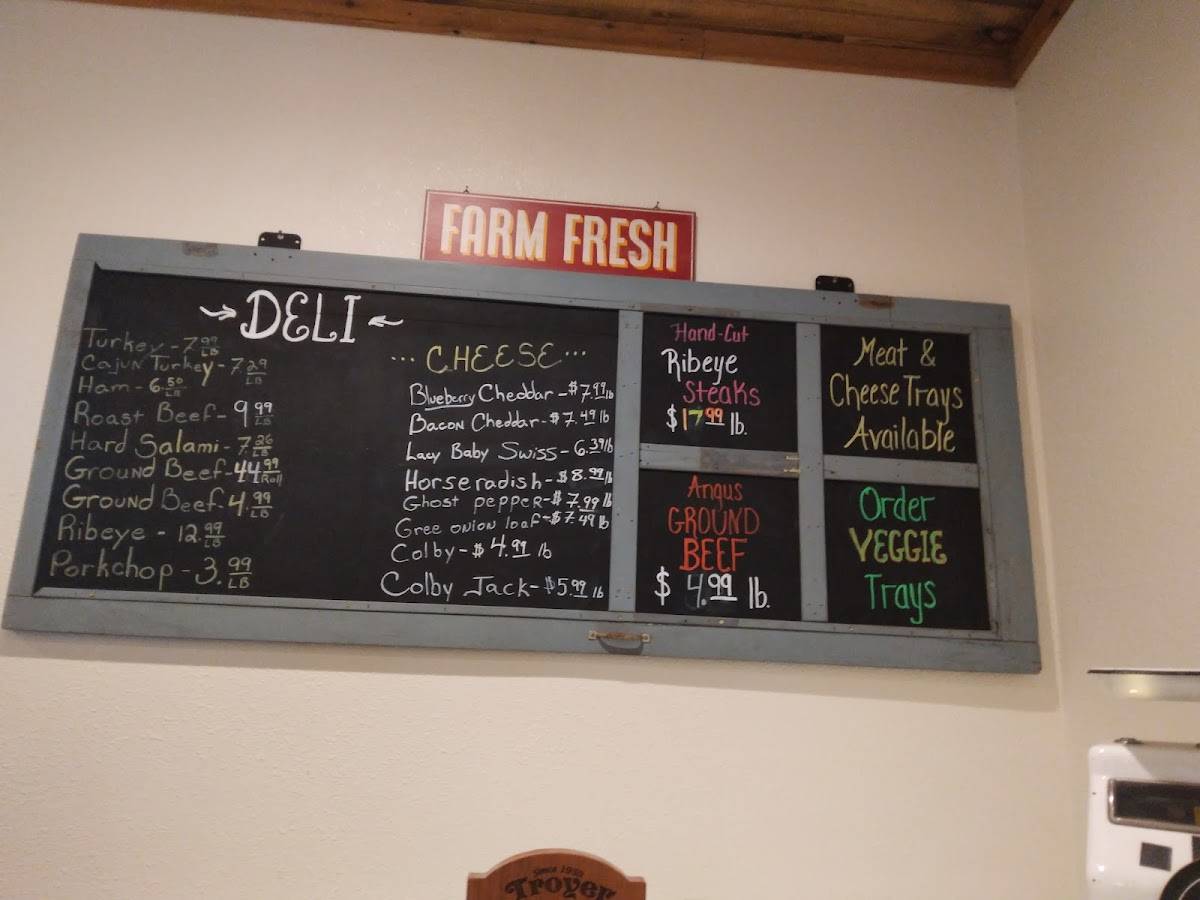 FARM FRESH
DELI
Turkey - 7.99 LB
Cajun Turkey - 7.29 LB
Ham - 6.50 LB
Roast Beef - 9.99 LB
Hard Salami - 7.26 LB
Ground Beef - 44.99 Roll
Ground Beef - 4.99 LB
Ribeye - 12.99 LB
Porkchop - 3.99 LB
... CHEESE ...
Blueberry Cheddar - $7.99 lb
Bacon Cheddar - $7.49 lb
Lacy Baby Swiss - 6.39 lb
Horseradish - $8.99 lb
Ghost pepper - $7.99 lb
Gree onion loaf - $7.49 lb
Colby - $4.99 lb
Colby Jack - $5.99 lb
Hand-Cut
Ribeye
Steaks
$17.99 lb.
Angus
GROUND
BEEF
$4.99 lb.
Meat &
Cheese Trays
Available
Order
VEGGIE
Trays
Since 1953
Troyer